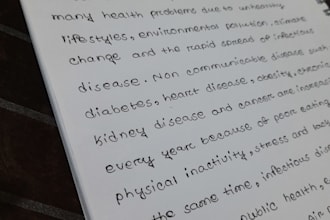 many health problems due to unhealthy
lifestyles, environmental pollution, climate
change and the rapid spread of infectious
disease. Non communicable disease such
diabetes, heart disease, obesity, chronic
kidney disease and cancer are increas
every year because of poor eating
physical inactivity, stress and lack
the same time, infectious dise
public health, e